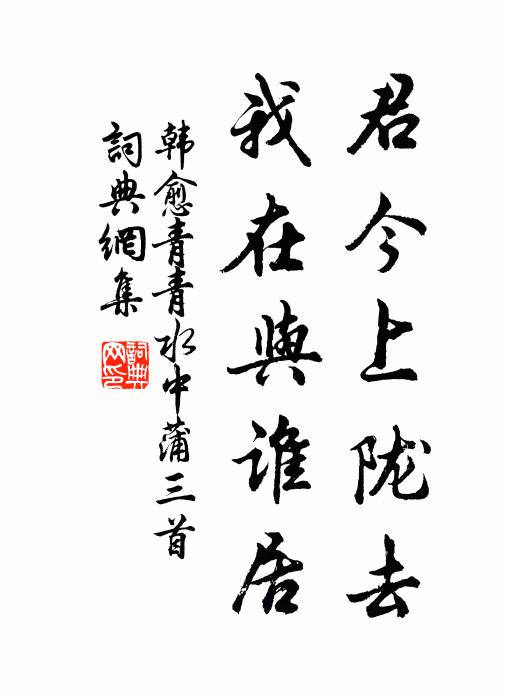 君今上陇去
我在與谁居
韩愈青青水中蒲三首
詞典網集
詞典网印